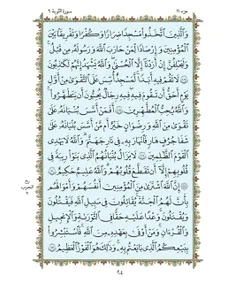 سورة التوبة ٩
جزء ١١
وَالَّذِينَ اتَّخَذُوا مَسْجِدًا ضِرَارًا وَكُفْرًا وَتَفْرِيقًا بَيْنَ
الْمُؤْمِنِينَ وَإِرْصَادًا لِمَنْ حَارَبَ اللَّهَ وَرَسُولَهُ مِنْ قَبْلُ
وَلَيَحْلِفُنَّ إِنْ أَرَدْنَا إِلَّا الْحُسْنَىٰ وَاللَّهُ يَشْهَدُ إِنَّهُمْ لَكَاذِبُونَ
لَا تَقُمْ فِيهِ أَبَدًا لَمَسْجِدٌ أُسِّسَ عَلَى التَّقْوَىٰ مِنْ أَوَّلِ
يَوْمٍ أَحَقُّ أَنْ تَقُومَ فِيهِ فِيهِ رِجَالٌ يُحِبُّونَ أَنْ يَتَطَهَّرُوا
وَاللَّهُ يُحِبُّ الْمُطَّهِّرِينَ أَفَمَنْ أَسَّسَ بُنْيَانَهُ عَلَىٰ
تَقْوَىٰ مِنَ اللَّهِ وَرِضْوَانٍ خَيْرٌ أَمْ مَنْ أَسَّسَ بُنْيَانَهُ عَلَىٰ
شَفَا جُرُفٍ هَارٍ فَانْهَارَ بِهِ فِي نَارِ جَهَنَّمَ وَاللَّهُ لَا يَهْدِي
الْقَوْمَ الظَّالِمِينَ لَا يَزَالُ بُنْيَانُهُمُ الَّذِي بَنَوْا رِيبَةً فِي
قُلُوبِهِمْ إِلَّا أَنْ تَقَطَّعَ قُلُوبُهُمْ وَاللَّهُ عَلِيمٌ حَكِيمٌ
إِنَّ اللَّهَ اشْتَرَىٰ مِنَ الْمُؤْمِنِينَ أَنْفُسَهُمْ وَأَمْوَالَهُمْ
بِأَنَّ لَهُمُ الْجَنَّةَ يُقَاتِلُونَ فِي سَبِيلِ اللَّهِ فَيَقْتُلُونَ
وَيُقْتَلُونَ وَعْدًا عَلَيْهِ حَقًّا فِي التَّوْرَاةِ وَالْإِنْجِيلِ
وَالْقُرْآنِ وَمَنْ أَوْفَىٰ بِعَهْدِهِ مِنَ اللَّهِ فَاسْتَبْشِرُوا
بِبَيْعِكُمُ الَّذِي بَايَعْتُمْ بِهِ وَذَٰلِكَ هُوَ الْفَوْزُ الْعَظِيمُ